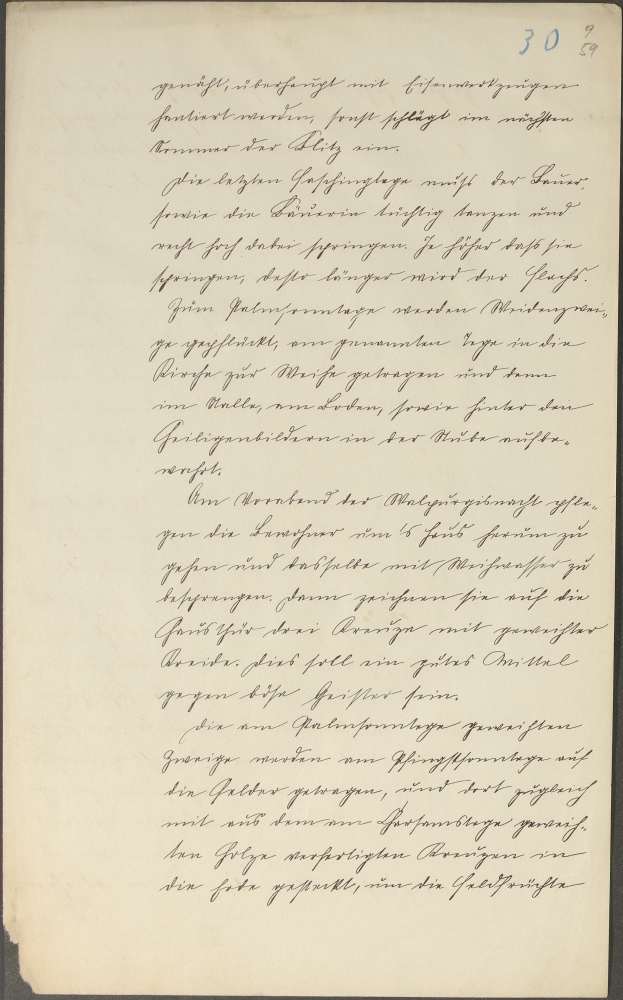 30 9
59
genäht, überhaupt mit Eisenwerkzeugen
hantiert werden, sonst schlägt im nächsten
Sommer der Blitz ein.
Die letzten Faschingtage muß der Bauer,
sowie die Bäuerin tüchtig tanzen und
recht hoch dabei springen. Je höher daß sie
springen, desto länger wird der Flachs.
Zum Palmsonntage werden Weidenzwei-
ge gepflückt, am genannten Tage in die
Kirche zur Weihe getragen und dann
im Stalle, am Boden, sowie hinter den
Heiligenbildern in der Stube aufbe-
wahrt.
Am Vorabend der Walpurgisnacht pfle-
gen die Bewohner um's Haus herum zu
gehen und dasselbe mit Weihwasser zu
besprengen. Dann zeichnen sie auf die
Hausthür drei Kreuze mit geweihter
Kreide. Dies soll ein gutes Mittel
gegen böse Geister sein.
Die am Palmsonntage geweihten
Zweige werden am Pfingstsonntage auf
die Felder getragen, und dort zugleich
mit aus dem am Charsamstage geweih-
ten Holze verfertigten Kreuzen in
die Erde gesteckt, um die Feldfrüchte